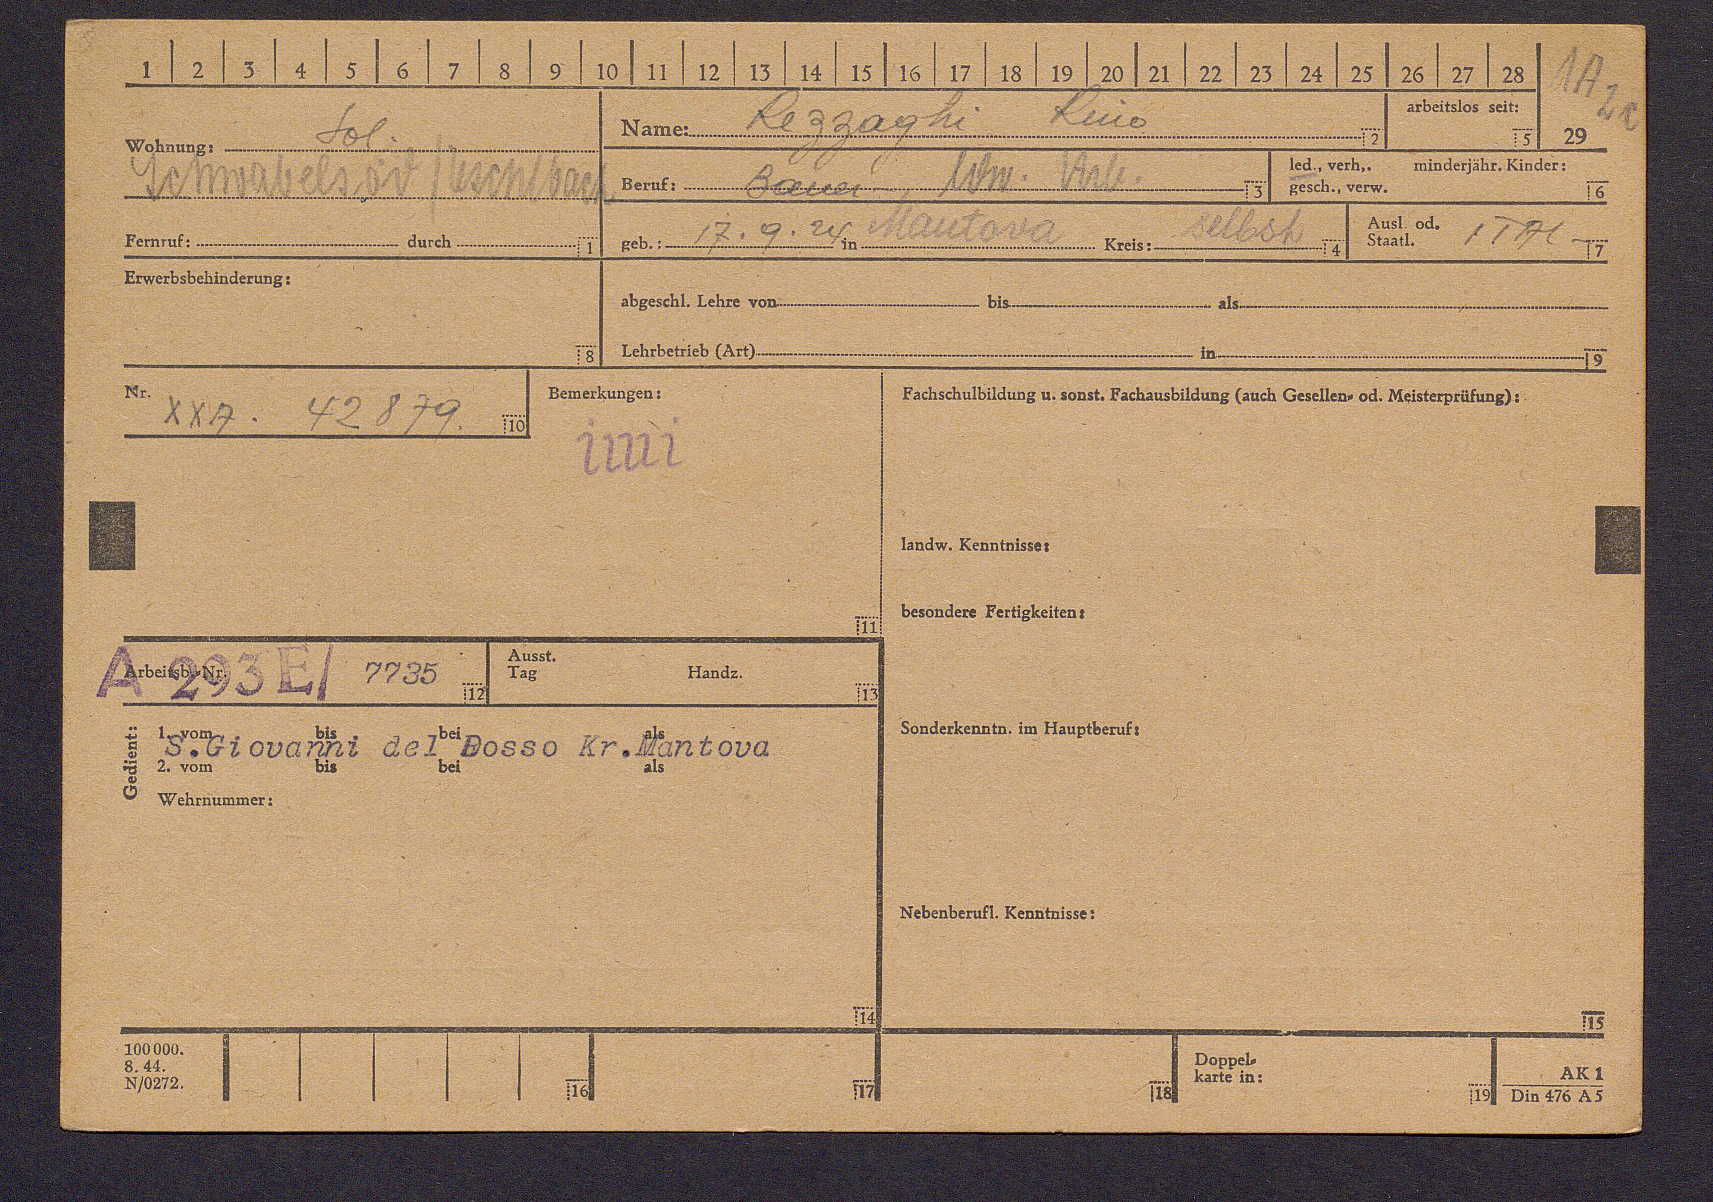 1 2 3 4 5 6 7 8 9 10 11 12 13 14 15 16 17 18 19 20 21 22 23 24 25 26 27 28
1A
29
Wohnung: Sol.
Schwabelsöd/Eschlbach
Fernruf: durch 1
Name: Rezzaghi Rino 2
arbeitslos seit: 5
Beruf: Bauer 3
led., verh., minderjähr. Kinder:
gesch., verw. 6
geb.: 17.9.24 in Mantova Kreis: selbst 4
Ausl. od.
Staatl. 7
Erwerbsbehinderung:
8
abgeschl. Lehre von bis als
Lehrbetrieb (Art) in 9
Nr. XXA. 42879. 10
Bemerkungen:
11
Fachschulbildung u. sonst. Fachausbildung (auch Gesellen- od. Meisterprüfung):
landw. Kenntnisse:
besondere Fertigkeiten:
A 293E/ 7735
Arbeitsb.-Nr. 12
Ausst.
Tag Handz. 13
Gedient:
1. vom bis bei als
S.Giovanni del Dosso Kr.Mantova
2. vom bis bei als
Wehrnummer:
14
Sonderkenntn. im Hauptberuf:
Nebenberufl. Kenntnisse:
15
100000.
8. 44.
N/0272.
16 17 18
Doppel-
karte in: 19
AK 1
Din 476 A5